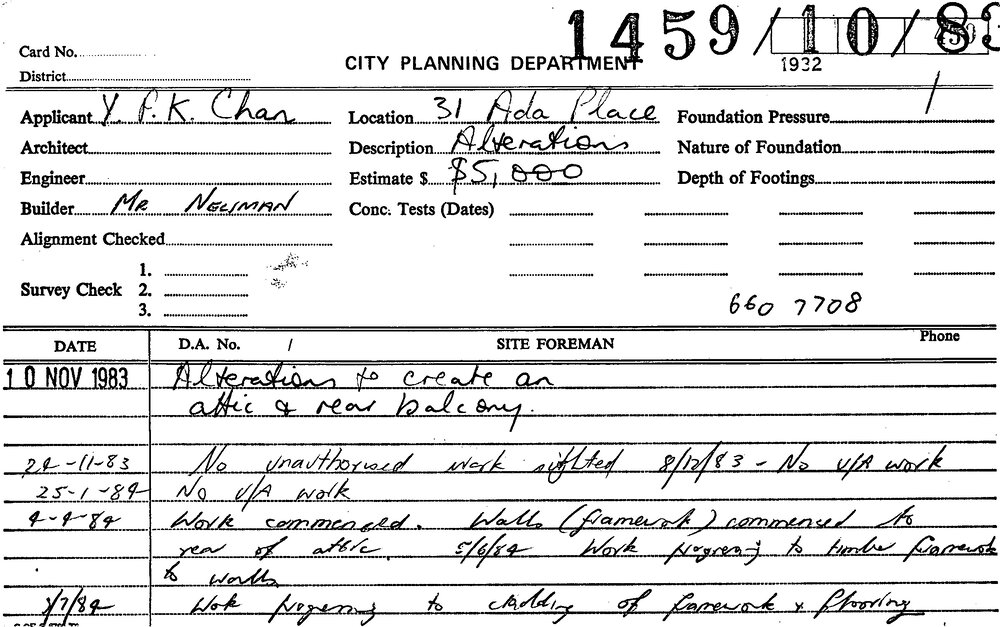 1459/10/83
Card No.
1932
CITY PLANNING DEPARTMENT
District
Applicant Y. P. K. Chan Location 31 Ada Place Foundation Pressure /
Architect Description Alterations Nature of Foundation
Engineer Estimate $ $5,000 Depth of Footings
Builder MR NELIMAN Conc. Tests (Dates)
Alignment Checked
1.
Survey Check 2.
3.
660 7708
DATE D.A. No. / SITE FOREMAN Phone
10 NOV 1983 Alterations to create an
attic & rear balcony.
24-11-83 No unauthorised work sighted 8/12/83 - No U/A work
25-1-84 No U/A work
4-4-84 Work commenced. Walls (framework) commenced to
rear of attic. 5/6/84 Work progressing to timber framework
to walls
/7/84 Work progressing to cladding of framework & flooring